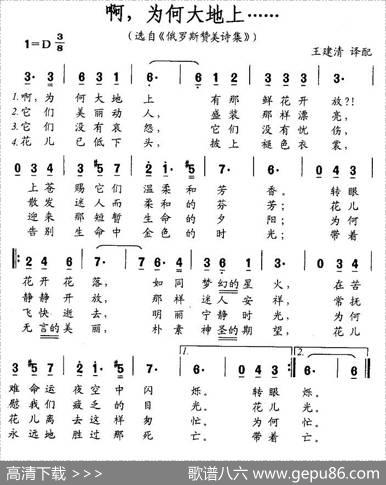 啊，为何大地上……
(选自《俄罗斯赞美诗集》)
1=D 3/8
王建清 译配
3· 3 6 1 3 1 6· 6 3 4 3 1 7·
1.啊，为 何 大 地 上 有 那 鲜 花 开 放?!
2.它 们 美 丽 动 人， 盛 装 那 样 漂 亮，
3.它 们 没 有 哀 怨， 它 们 没 有 忧 伤，
4.花 儿 已 低 下 头， 披 上 褪 色 衣 裳，
上 苍 赐 它 们 温 柔 和 芳 香。 转 眼
散 发 迷 人 而 柔 和 的 芬 芳； 花 儿
迎 来 那 短 暂 生 命 的 夕 阳； 为 何
告 别 生 命 中 金 色 的 时 光； 带 着
花 开 花 落， 如 同 梦 幻的 星 火， 在 苦
静 静 开 放， 那 样 迷 人 安 祥， 常 抚
飞 快 逝 去， 明 丽 宁 静 时 光， 为 何
无 言的 美 丽， 朴 素 神 圣的 期 望， 花 儿
1. 2.
难 命 运 夜 空 中 闪 烁。 转 眼 烁。
慰 我 们 疲 乏 的 目 光。 花 儿 光。
花 儿 离 去 这 样 匆 忙。 为 何 忙。
永 远 地 胜 过 那 死 亡。 带 着 亡。
高清下载 >>>
歌谱八六 www.gepu86.com